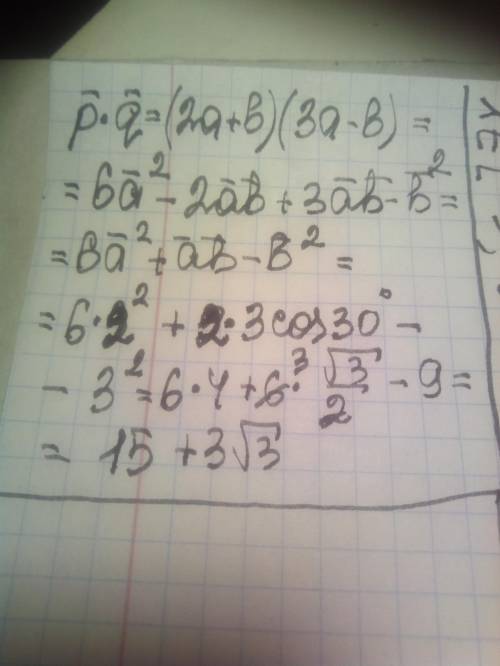 p̄·q̄=(2a+b)(3a-b)=
=6ā²-2āb̄+3āb̄-b̄²=
=6ā²+āb̄-b²=
=6·2²+2·3cos30°-
-3²=6·4+6·³ √3/2-9=
=15+3√3